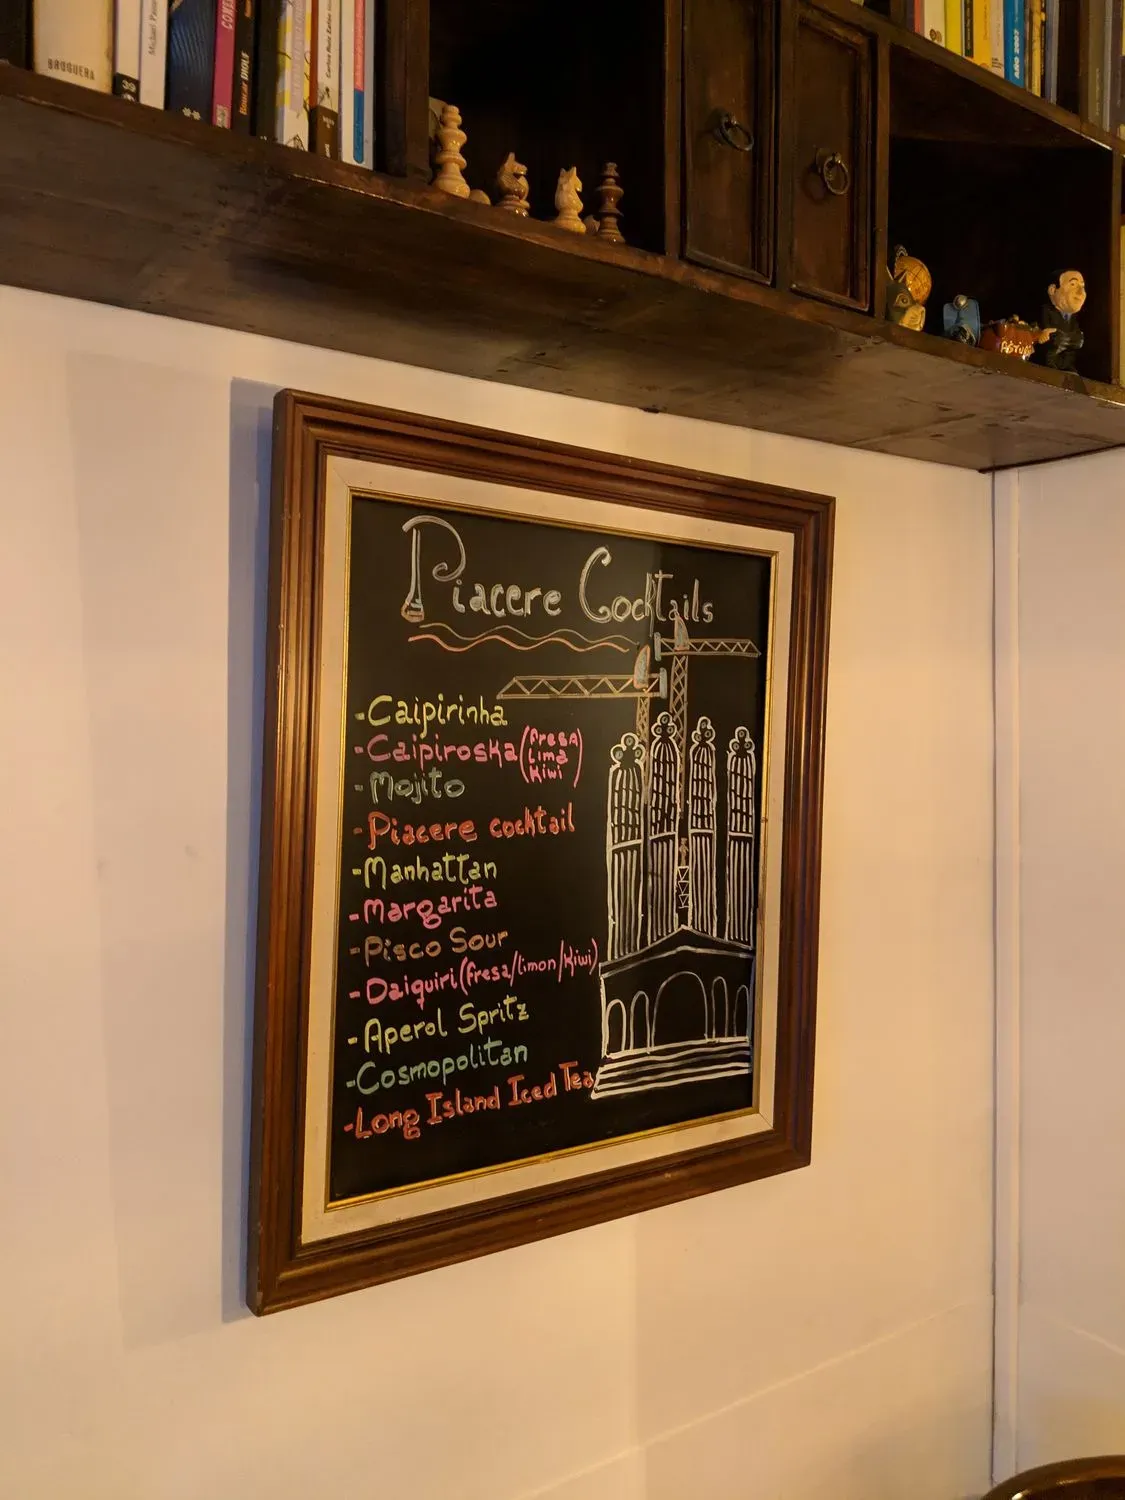 BRUGUERA
39
Boucar DIOLF
AÑO 2007
Piacere Cocktails
-Caipirinha
-Caipiroska (fresa
lima
Kiwi)
-Mojito
-Piacere cocktail
-Manhattan
-Margarita
-Pisco Sour
-Daiquiri (fresa/limon/Kiwi)
-Aperol Spritz
-Cosmopolitan
-Long Island Iced Tea